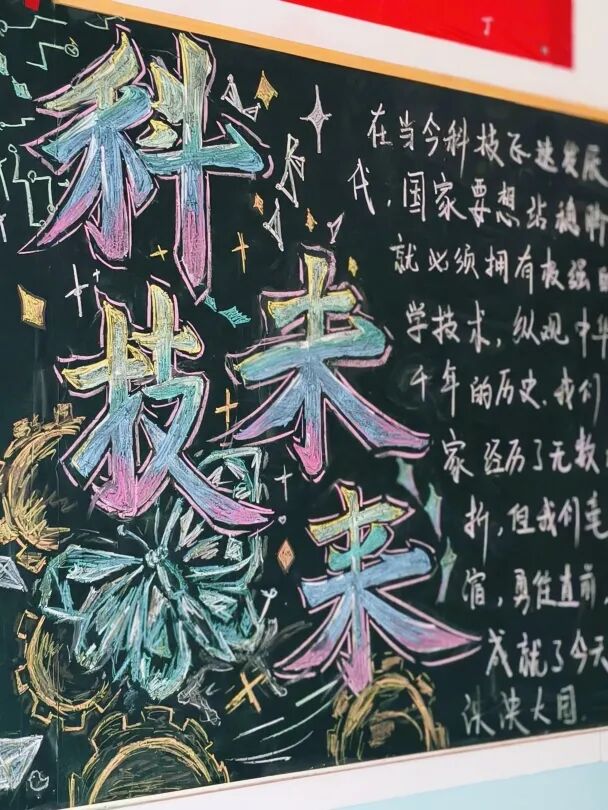 科技
未来
在当今科技飞速发展
代，国家要想站稳脚
就必须拥有极强
学技术，纵观中华
千年的历史，我们
家经历了无数
折，但我们毫
宿，勇往直前，
成就了今天
泱泱大国